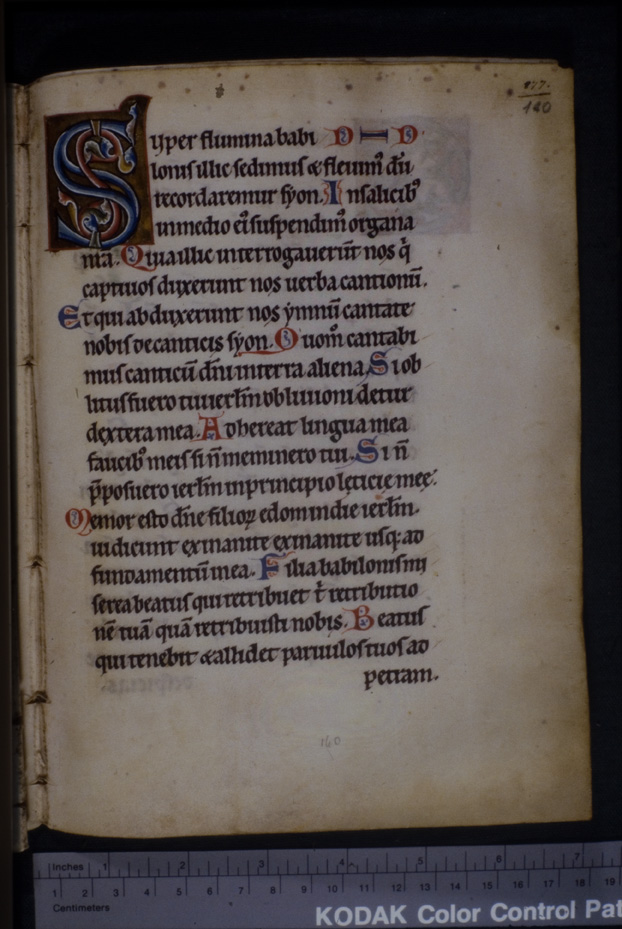 177.
140
Syper flumina babi D I D
lonis illic sedimus & fleuimꝰ dū
recordaremur syon. Insalicibꝰ
inmedio eiꝰ suspendimꝰ organa
nr̄a. Quia illic interrogauerūt nos q̄
captiuos duxerunt nos uerba cantionū.
Et qui abduxerunt nos ẏmnū cantate
nobis decanticis syon. Quom̊ cantabi
mus canticū dn̄i interra aliena. Si ob
litus fuero tui ierl̄m obliuioni detur
dextera mea. Adhereat lingua mea
faucibꝰ meis si n̄ meminero tui. Si n̄
p̄posuero ierl̄m inprincipio lęticię męę.
Memor esto dn̄e filioꝝ edom indie ierl̄m.
ui dicunt exinanite exinanite usq; ad
fundamentū inea. Filia babilonis mi
serea beatus qui retribuet t̄ retributio
nē tuā quā retribuisti nobis. Beatus
qui tenebit & allidet paruulos tuos ad
petram.
160
Inches 1 2 3 4 5 6 7
1 2 3 4 5 6 7 8 9 10 11 12 13 14 15 16 17 18 19
Centimeters
KODAK Color Control Pat